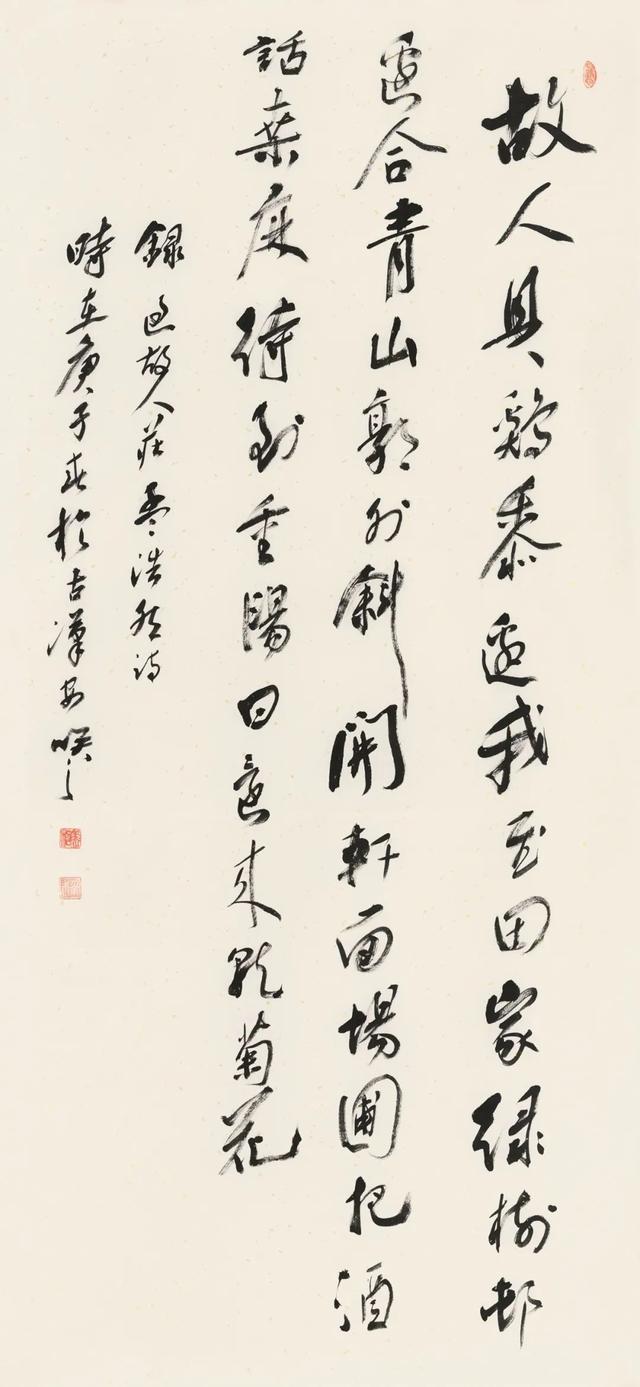 故人具鷄黍邀我至田家綠樹邨
邊合青山郭外斜開軒面場圃把酒
話桑麻待到重陽日還來就菊花
錄過故人莊孟浩然詩
時在庚子春於古漢